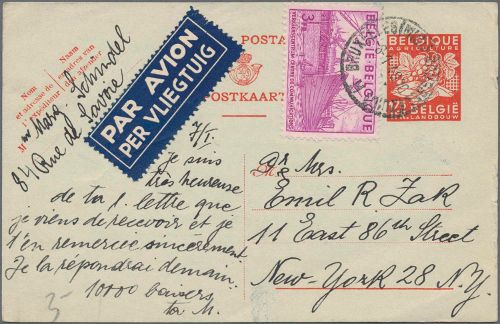 Nom
et adresse de
l'expéditeur
Naam
en adres van
den afzender
M Marg Schindel
84 Rue de Savoie
PAR AVION
PER VLIEGTUIG
POSTA
POSTKAART
BELGIE-BELGIQUE
BRUX
BELGIQUE
AGRICULTURE
BELGIË
LANDBOUW
7/I.
je suis
très heureuse
de ta l. lettre que
je viens de recevoir et je
t'en remercie sincèrement
Je la répondrai demain.
10000 baisers
ta M.
5-
Dr Mrs.
Emil R Zak
11 East 86th Street
New-York 28 N.Y.